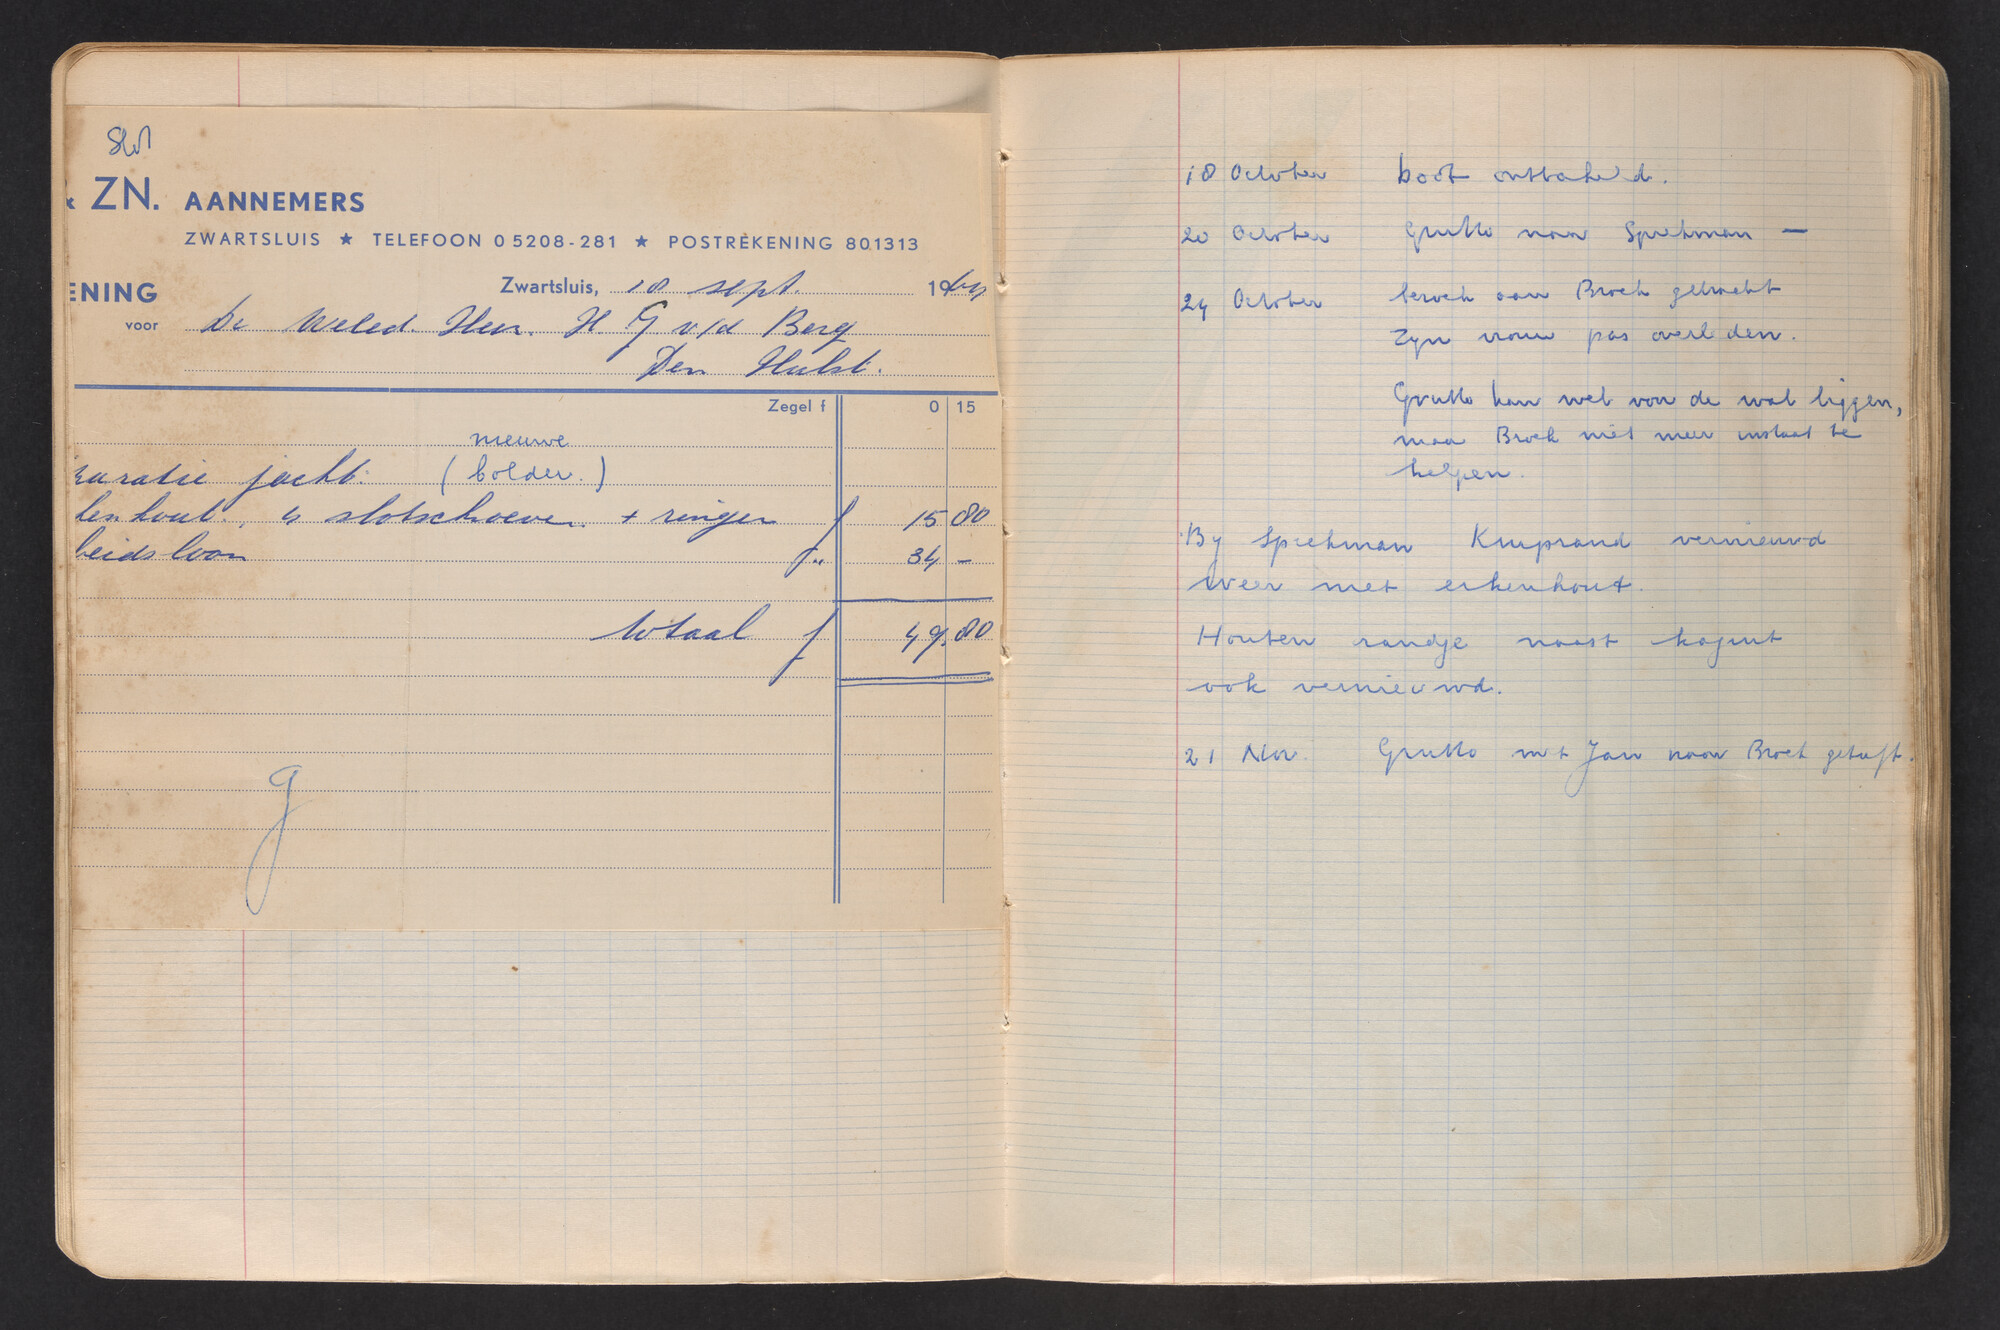 & ZN. AANNEMERS
ZWARTSLUIS ★ TELEFOON 05208-281 ★ POSTREKENING 801313
ENING
Zwartsluis, 18 sept. 1964
voor De Weled. Heer. H G v/d Berg
Den Hulst.
Zegel f 0 15
nieuwe
aratie jacht. (bolder.)
kenhout., 4 slotschroeven. + ringen f 15 80
beidsloon f„ 34 –
totaal f 49,80
18 October boot onttakeld.
20 October Grutto naar Spiekman —
24 October bezoek aan Broek gebracht
Zijn vrouw pas overleden.
Grutto kan wel voor de wal liggen,
maar Broek niet meer instaat te
helpen.
By Spiekman Kuiprand vernieuwd
weer met eikenhout.
Houten randje naast kajuit
ook vernieuwd.
21 Nov. Grutto met Jan naar Broek getuft.